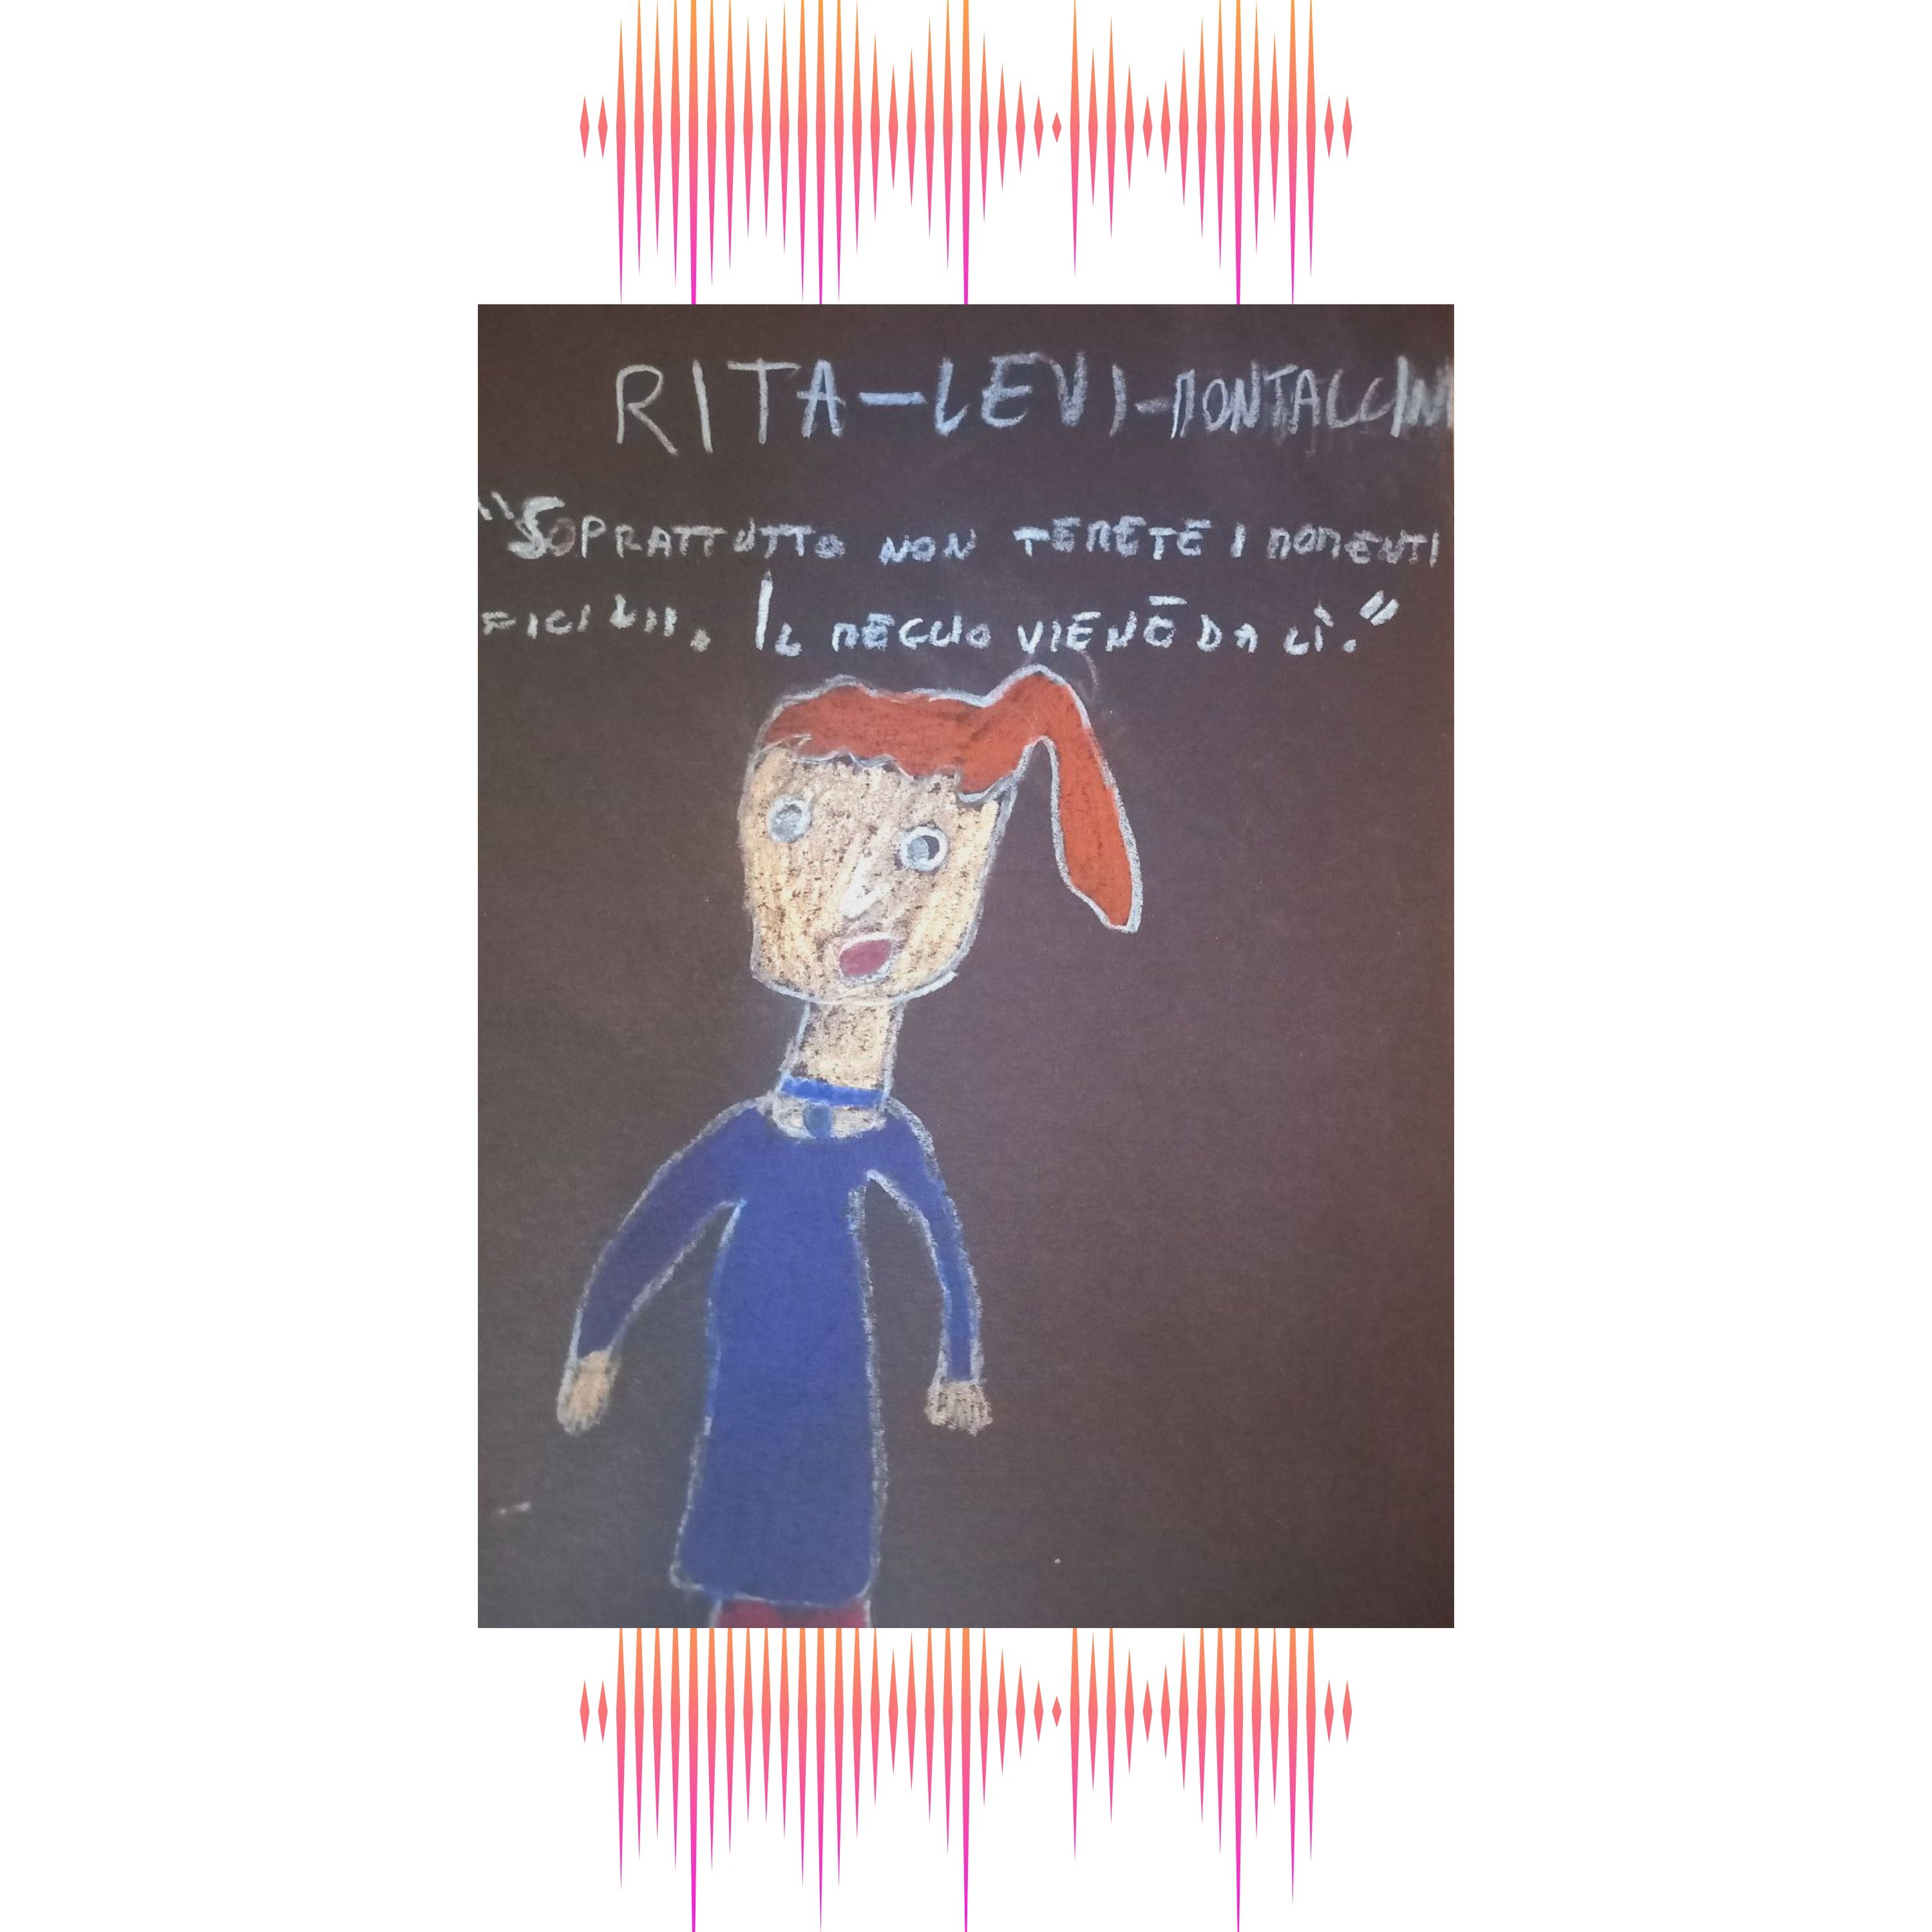 RITA-LEVI-MONTALCIN
"SOPRATTUTTO NON TEMETE I MOMENTI
FICILI. IL MEGLIO VIENE DA LÌ."